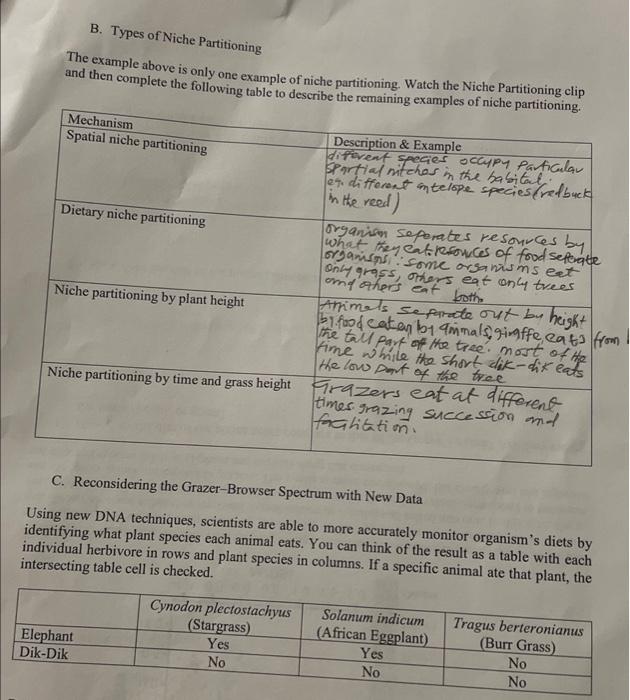 B. Types of Niche Partitioning
The example above is only one example of niche partitioning. Watch the Niche Partitioning clip
and then complete the following table to describe the remaining examples of niche partitioning.
Mechanism
Description & Example
Spatial niche partitioning
different species occupy Particular
spartial nitches in the habitat.
eg. different antelope species (redbuck
in the reed)
Dietary niche partitioning
organism seperates resources by
what they eat. resources of food seperate
organisms. some organisms eat
only grass, others eat only trees
and others eat both.
Niche partitioning by plant height
Animals seperate out by height
by food eaten by animals, giraffe eats from
the tall part of the tree. most of the
time while the short dik-dik eats
the low part of the tree
Niche partitioning by time and grass height
Grazers eat at different
times. grazing succession and
facilitation.
C. Reconsidering the Grazer–Browser Spectrum with New Data
Using new DNA techniques, scientists are able to more accurately monitor organism's diets by
identifying what plant species each animal eats. You can think of the result as a table with each
individual herbivore in rows and plant species in columns. If a specific animal ate that plant, the
intersecting table cell is checked.
Cynodon plectostachyus
(Stargrass)
Solanum indicum
(African Eggplant)
Tragus berteronianus
(Burr Grass)
Elephant Yes Yes No
Dik-Dik No No No